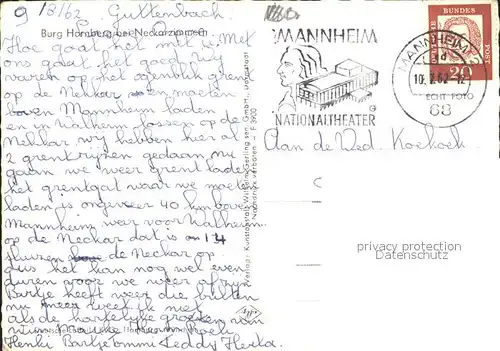 9/8/62 Guttenbach.
Burg Hornberg bei Neckarzimmern
Hoe gaat het met u. Met
ons gaat het goed. Wij
waren op het ogenblik grent
op de Nekkar en moeten
boven Mannheim laden
en in Walheim lossen op de
Nekkar wij hebben hier al
2 grentreizen gedaan nu
gaan we weer grent laden
het grentgat waar we moeten
laden is ongeveer 40 km boven
Mannheim weer voor Walheim
op de Neckar dat is 14
sluizen de Neckar op
dus het kan nog wel even
duren voor we weer of zijn
Bartje heeft weer die bulten
nu meer weet ik niet
als de hartelijke groeten van
Henki Bartje ommi Teddy Herta.
Verlag: Kunstanstalt Wilhelm Gerling sen. GmbH., Darmstadt
Nachdruck verboten F 3920
Agfa
MANNHEIM
NATIONALTHEATER
MANNHEIM
10.8.62-12
68
DEUTSCHE BUNDESPOST
20
ECHT FOTO
Aan de Wed. Koekoek
property protection
watermark